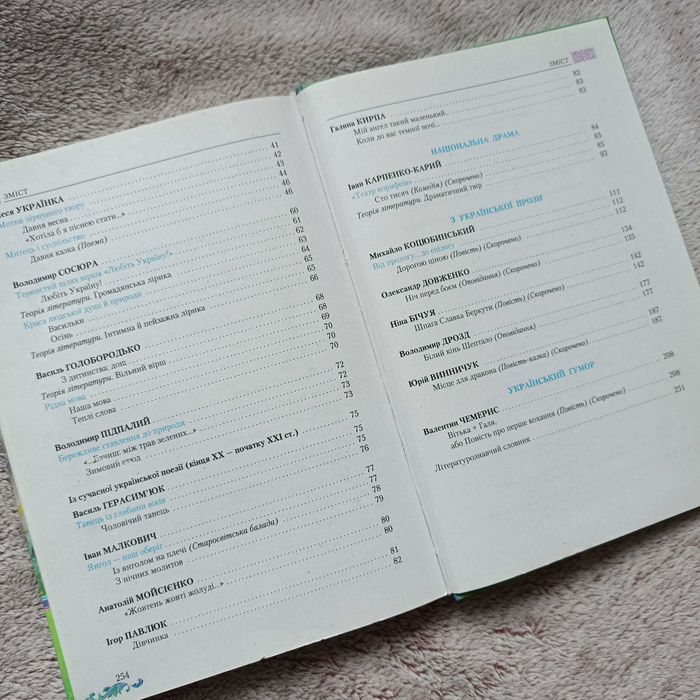 ЗМІСТ
Леся УКРАЇНКА 41
Мотив ліричного твору 42
Давня весна 43
«Хотіла б я піснею стати...» 44
Митець і суспільство 46
Давня казка (Поема) 46
Володимир СОСЮРА 60
Тернистий шлях вірша «Любіть Україну!» 61
Любіть Україну! 62
Теорія літератури. Громадянська лірика 64
Краса людської душі й природи 65
Васильки 66
Осінь 65
Теорія літератури. Інтимна й пейзажна лірика
Василь ГОЛОБОРОДЬКО 68
З дитинства: дощ 68
Теорія літератури. Вільний вірш
Рідна мова 70
Наша мова 70
Теплі слова 70
Володимир ПІДПАЛИЙ 72
Бережливе ставлення до природи 72
«...Бачиш: між трав зелених...» 73
Зимовий етюд 73
Із сучасної української поезії (кінця XX — початку XXI ст.) 75
Василь ГЕРАСИМ'ЮК 75
Танець із глибини віків 75
Чоловічий танець 76
Іван МАЛКОВИЧ 77
Янгол — наш оберіг 77
Із янголом на плечі (Старосвітська балада) 78
З нічних молитов 79
Анатолій МОЙСІЄНКО 80
«Жовтень жовті жолуді...» 80
Ігор ПАВЛЮК 81
Дівчинка 82
254
ЗМІСТ
Галина КИРПА 82
Мій ангел такий маленький... 83
Коли до вас темної ночі... 83
НАЦІОНАЛЬНА ДРАМА
Іван КАРПЕНКО-КАРИЙ 84
«Театр корифеїв» 85
Сто тисяч (Комедія) (Скорочено) 85
Теорія літератури. Драматичний твір 93
З УКРАЇНСЬКОЇ ПРОЗИ
Михайло КОЦЮБИНСЬКИЙ 111
Від прологу... до епілогу 112
Дорогою ціною (Повість) (Скорочено) 112
Олександр ДОВЖЕНКО 134
Ніч перед боєм (Оповідання) (Скорочено) 135
Ніна БІЧУЯ 142
Шпага Славка Беркути (Повість) (Скорочено) 142
Володимир ДРОЗД 177
Білий кінь Шептало (Оповідання) 177
Юрій ВИННИЧУК 187
Місце для дракона (Повість-казка) (Скорочено) 187
УКРАЇНСЬКИЙ ГУМОР
Валентин ЧЕМЕРИС 208
Вітька + Галя,
або Повість про перше кохання (Повість) (Скорочено) 208
Літературознавчий словник 251